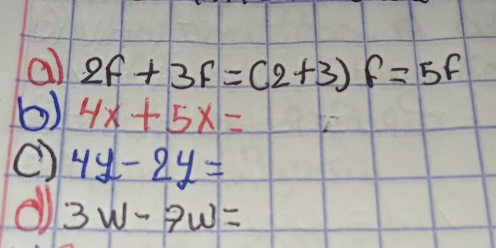 a) 2f + 3f = (2+3) f = 5f
b) 4x + 5x =
c) 4y - 2y =
d) 3w - 7w =